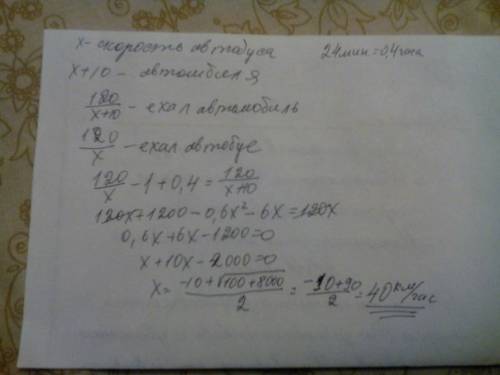 x - скорость автобуса 24 мин = 0,4 часа
x+10 - автомобиля
120/x+10 - ехал автомобиль
120/x - ехал автобус
120/x - 1 + 0,4 = 120/x+10
120x + 1200 - 0,6x² - 6x = 120x
0,6x + 6x - 1200 = 0
x + 10x - 2000 = 0
x = -10 + √100 + 8000/2 = -10 + 90/2 = 40 км/час